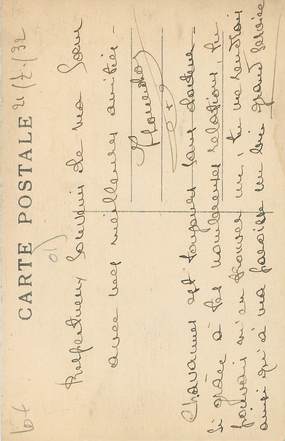 CARTE POSTALE
21/7/32
Respectueux souvenir de ma soeur
avec mes meilleures amitiés -
Chavannes est toujours sans docteur -
Si grâce à tes nombreuses relations, tu
pouvais m'en trouver un, tu me rendrais
ainsi qu'à ma paroisse un bien grand service